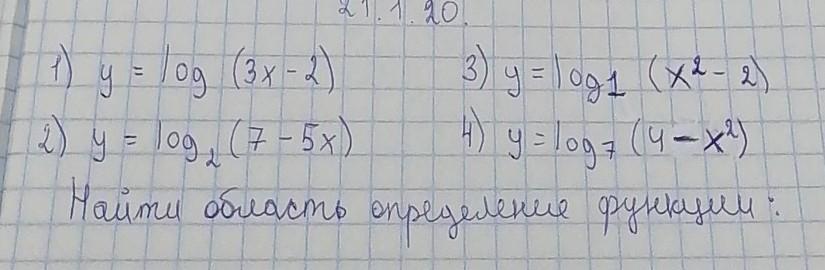 21.1.20.
1) y = log (3x - 2) 3) y = log₁ (x² - 2)
2) y = log₂ (7 - 5x) 4) y = log₇ (4 - x²)
Найти область определение функции: